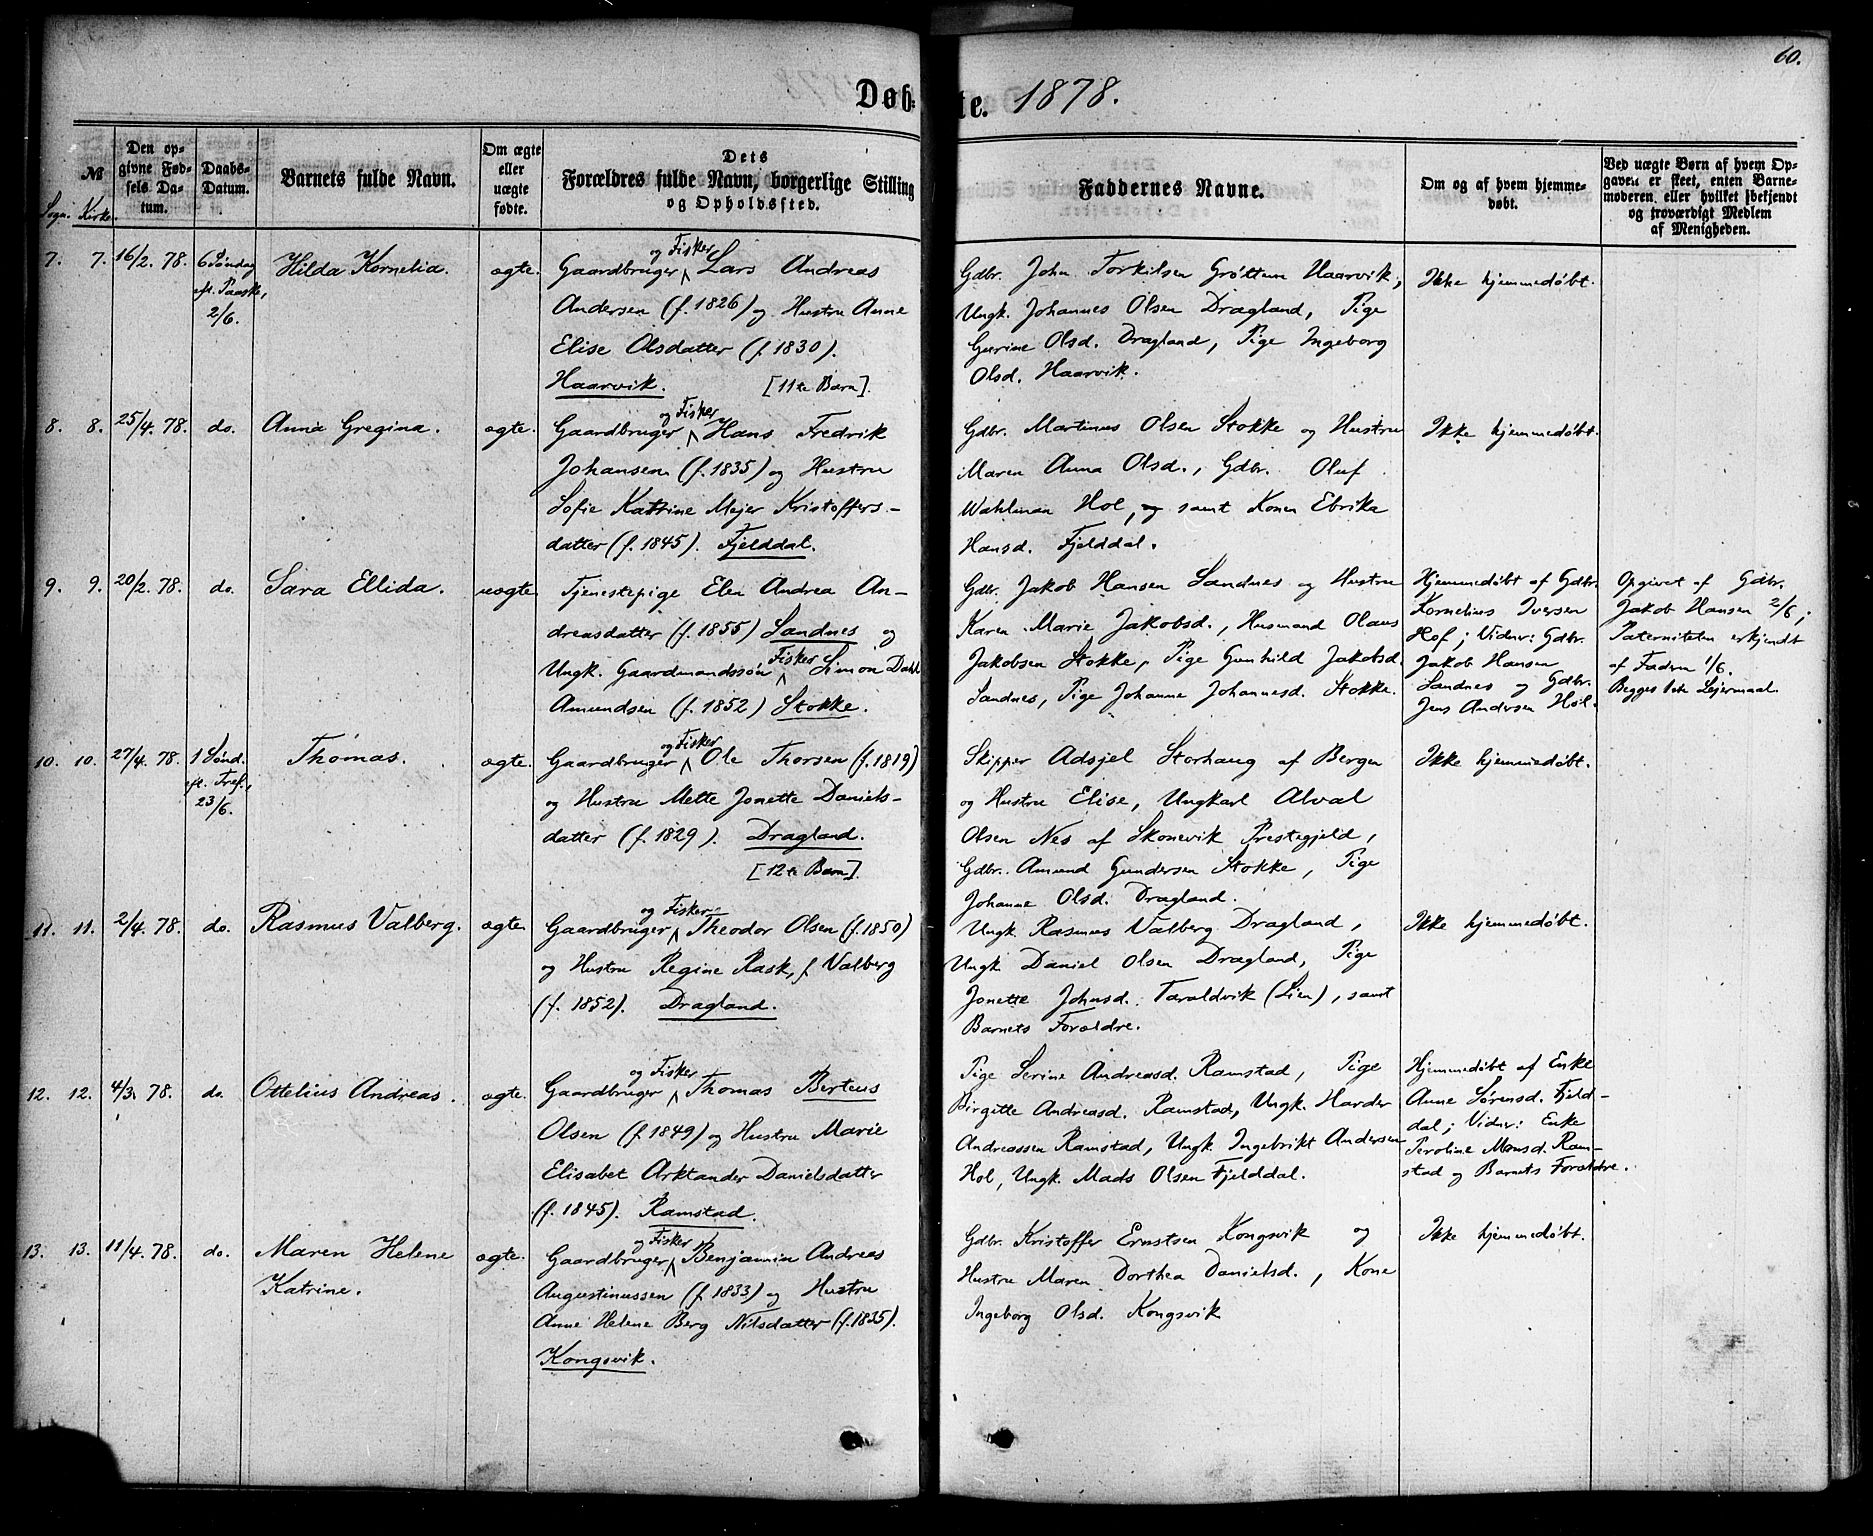 60.
Døbte. 1878.
№
Sogn. Kirke.
Den opgivne Fødsels Datum.
Daabs-Datum.
Barnets fulde Navn.
Om ægte eller uægte fødte.
Dets Forældres fulde Navn, borgerlige Stilling og Opholdssted.
Faddernes Navne.
Om og af hvem hjemmedøbt.
Ved uægte Børn af hvem Opgaven er skeet, enten Barnemoderen eller hvilket bekjendt og troværdigt Medlem af Menigheden.
7. 7. 16/2. 78. 6 Søndag eft. Paaske, 2/6. Hilda Kornelia. ægte.
Gaardbruger og Fisker Lars Andreas
Andersen (f. 1826) og Hustru Anne
Elise Olsdatter (f. 1830).
Haarvik. [11te Barn].
Gdbr. John Torkilsen Grøttum Haarvik,
Ungk. Johannes Olsen Dragland, Pige
Gurine Olsd. Dragland, Pige Ingeborg
Olsd. Haarvik.
Ikke hjemmedøbt.
8. 8. 25/4. 78. do. Anna Gregina. ægte.
Gaardbruger og Fisker Hans Fredrik
Johansen (f. 1835) og Hustru
Sofie Katrine Mejer Kristoffers-
datter (f. 1845). Fjelddal.
Gdbr. Martinus Olsen Stokke og Hustru
Maren Anna Olsd., Gdbr. Oluf
Wahlman Hol, og samt Konen Ebrika
Hansd. Fjelddal.
Ikke hjemmedøbt.
9. 9. 20/2. 78. do. Sara Ellida. uægte.
Tjenestepige Elen Andrea An-
dreasdatter (f. 1855) Sandnes og
Ungk. Gaardmandssøn Fisker Simon Dahl
Amundsen (f. 1852) Stokke.
Gdbr. Jakob Hansen Sandnes og Hustru
Karen Marie Jakobsd., Husmand Olaus
Jakobsen Stokke, Pige Gunhild Jakobsd.
Sandnes, Pige Johanne Johannesd. Stokke.
Hjemmedøbt af Gdbr.
Kornelius Iversen
Hof; Vidner: Gdbr.
Jakob Hansen
Sandnes og Gdbr.
Jens Andersen Hol.
Opgivet af Gdbr.
Jakob Hansen 2/6;
Paterniteten erkjendt
af Faderen 1/6.
Begges 1ste Lejermaal.
10. 10. 27/4. 78. 1 Sønd. eft. Tref., 23/6. Thomas. ægte.
Gaardbruger og Fisker Ole Thorsen (f. 1819)
og Hustru Mette Jonette Daniels-
datter (f. 1829). Dragland.
[12te Barn].
Skipper Adsjel Storhaug af Bergen
og Hustru Elise, Ungkarl Alval
Olsen Nes af Skonevik Prestegjeld,
Gdbr. Amund Gundersen Stokke, Pige
Johanne Olsd. Dragland.
Ikke hjemmedøbt.
11. 11. 2/4. 78. do. Rasmus Valberg. ægte.
Gaardbruger og Fisker Theodor Olsen (f. 1850)
og Hustru Regine Rask, f. Valberg
(f. 1852). Dragland.
Ungk. Rasmus Valberg Dragland,
Ungk. Daniel Olsen Dragland, Pige
Jonette Johnsd. Taraldvik (Lien), samt
Barnets Forældre.
Ikke hjemmedøbt.
12. 12. 4/3. 78. do. Ottelius Andreas. ægte.
Gaardbruger og Fisker Thomas Berteus
Olsen (f. 1849) og Hustru Marie
Elisabet Arktander Danielsdatter
(f. 1845). Ramstad.
Pige Serine Andreasd. Ramstad, Pige
Birgitte Andreasd. Ramstad, Ungk. Harder
Andreassen Ramstad, Ungk. Ingebrikt Andersen
Hol, Ungk. Mads Olsen Fjelddal.
Hjemmedøbt af Enke
Anne Sørensd. Fjeld-
dal; Vidner: Enke
Peroline Monsd. Ram-
stad og Barnets Forældre.
13. 13. 11/4. 78. do. Maren Helene Katrine. ægte.
Gaardbruger og Fisker Benjamin Andreas
Augustinussen (f. 1833) og Hustru
Anne Helene Berg Nilsdatter (f. 1835).
Kongsvik.
Gdbr. Kristoffer Ernstsen Kongsvik og
Hustru Maren Dorthea Danielsd., Kone
Ingeborg Olsd. Kongsvik
Ikke hjemmedøbt.